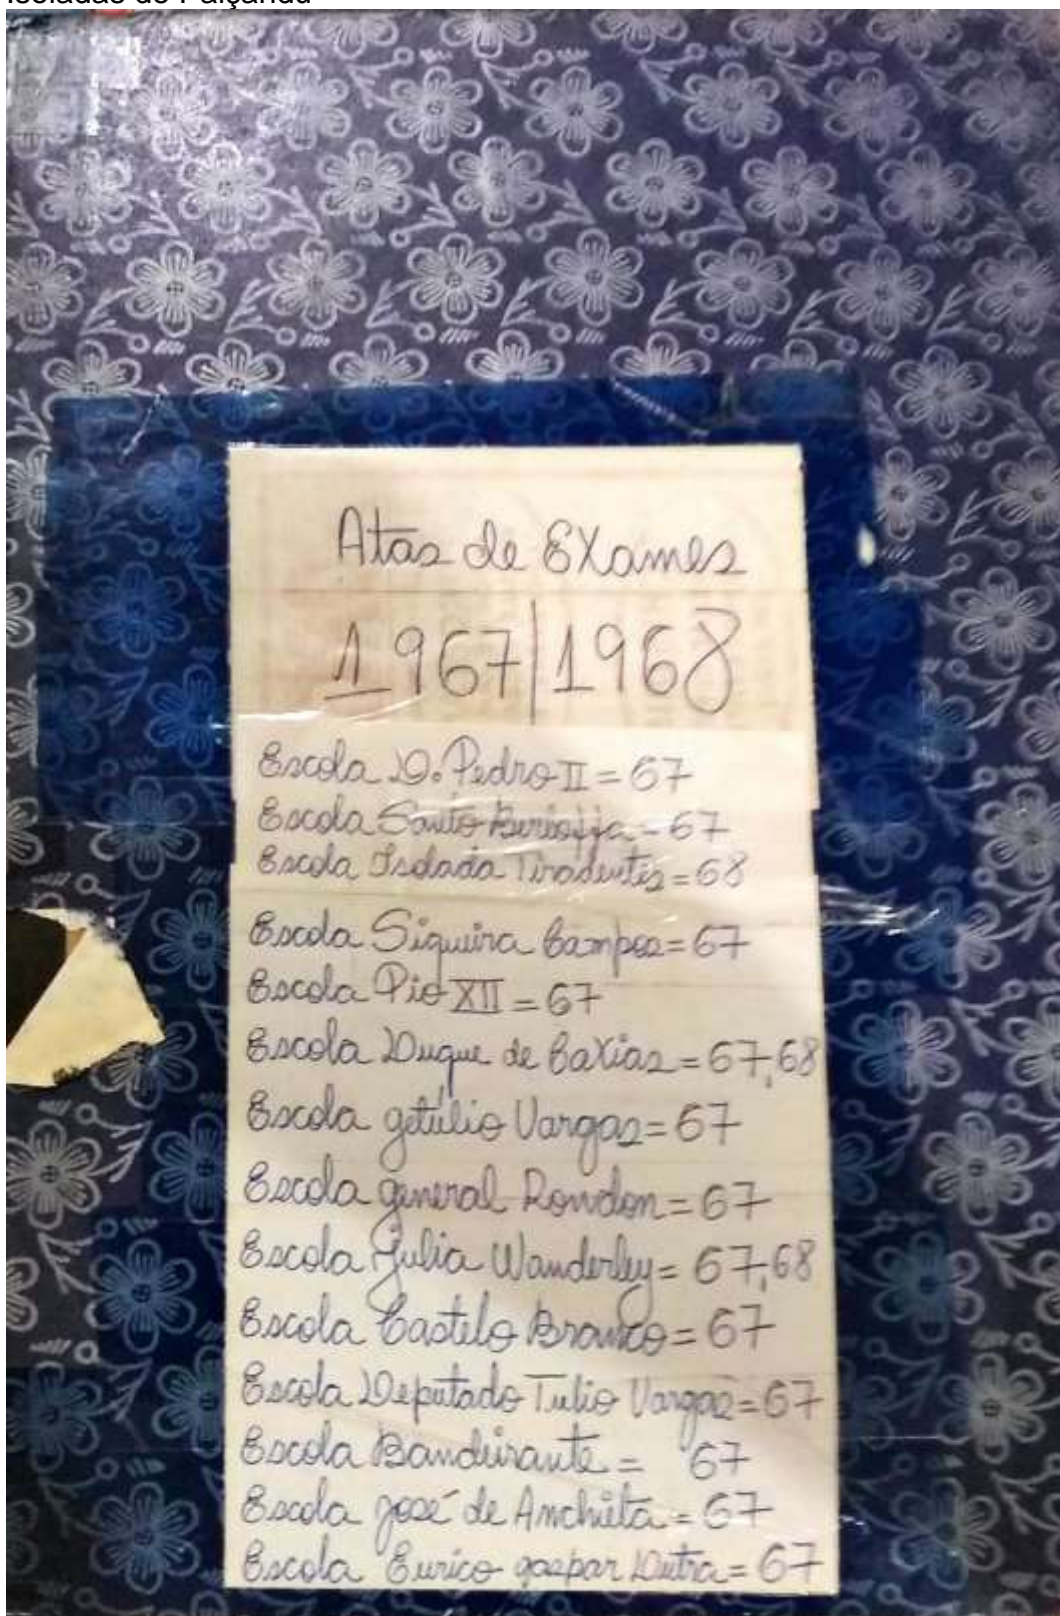 Isoladas de Paiçandu
Atas de Exames
1967/1968
Escola D. Pedro II = 67
Escola Santo = 67
Escola Isolada Tiradentes = 68
Escola Siqueira Campos = 67
Escola Pio XII = 67
Escola Duque de Caxias = 67,68
Escola getúlio Vargas = 67
Escola general Rondon = 67
Escola Julia Wanderley = 67,68
Escola Castelo Branco = 67
Escola Deputado Tulio Vargas = 67
Escola Bandeirante = 67
Escola josé de Anchieta = 67
Escola Eurico gaspar Dutra = 67